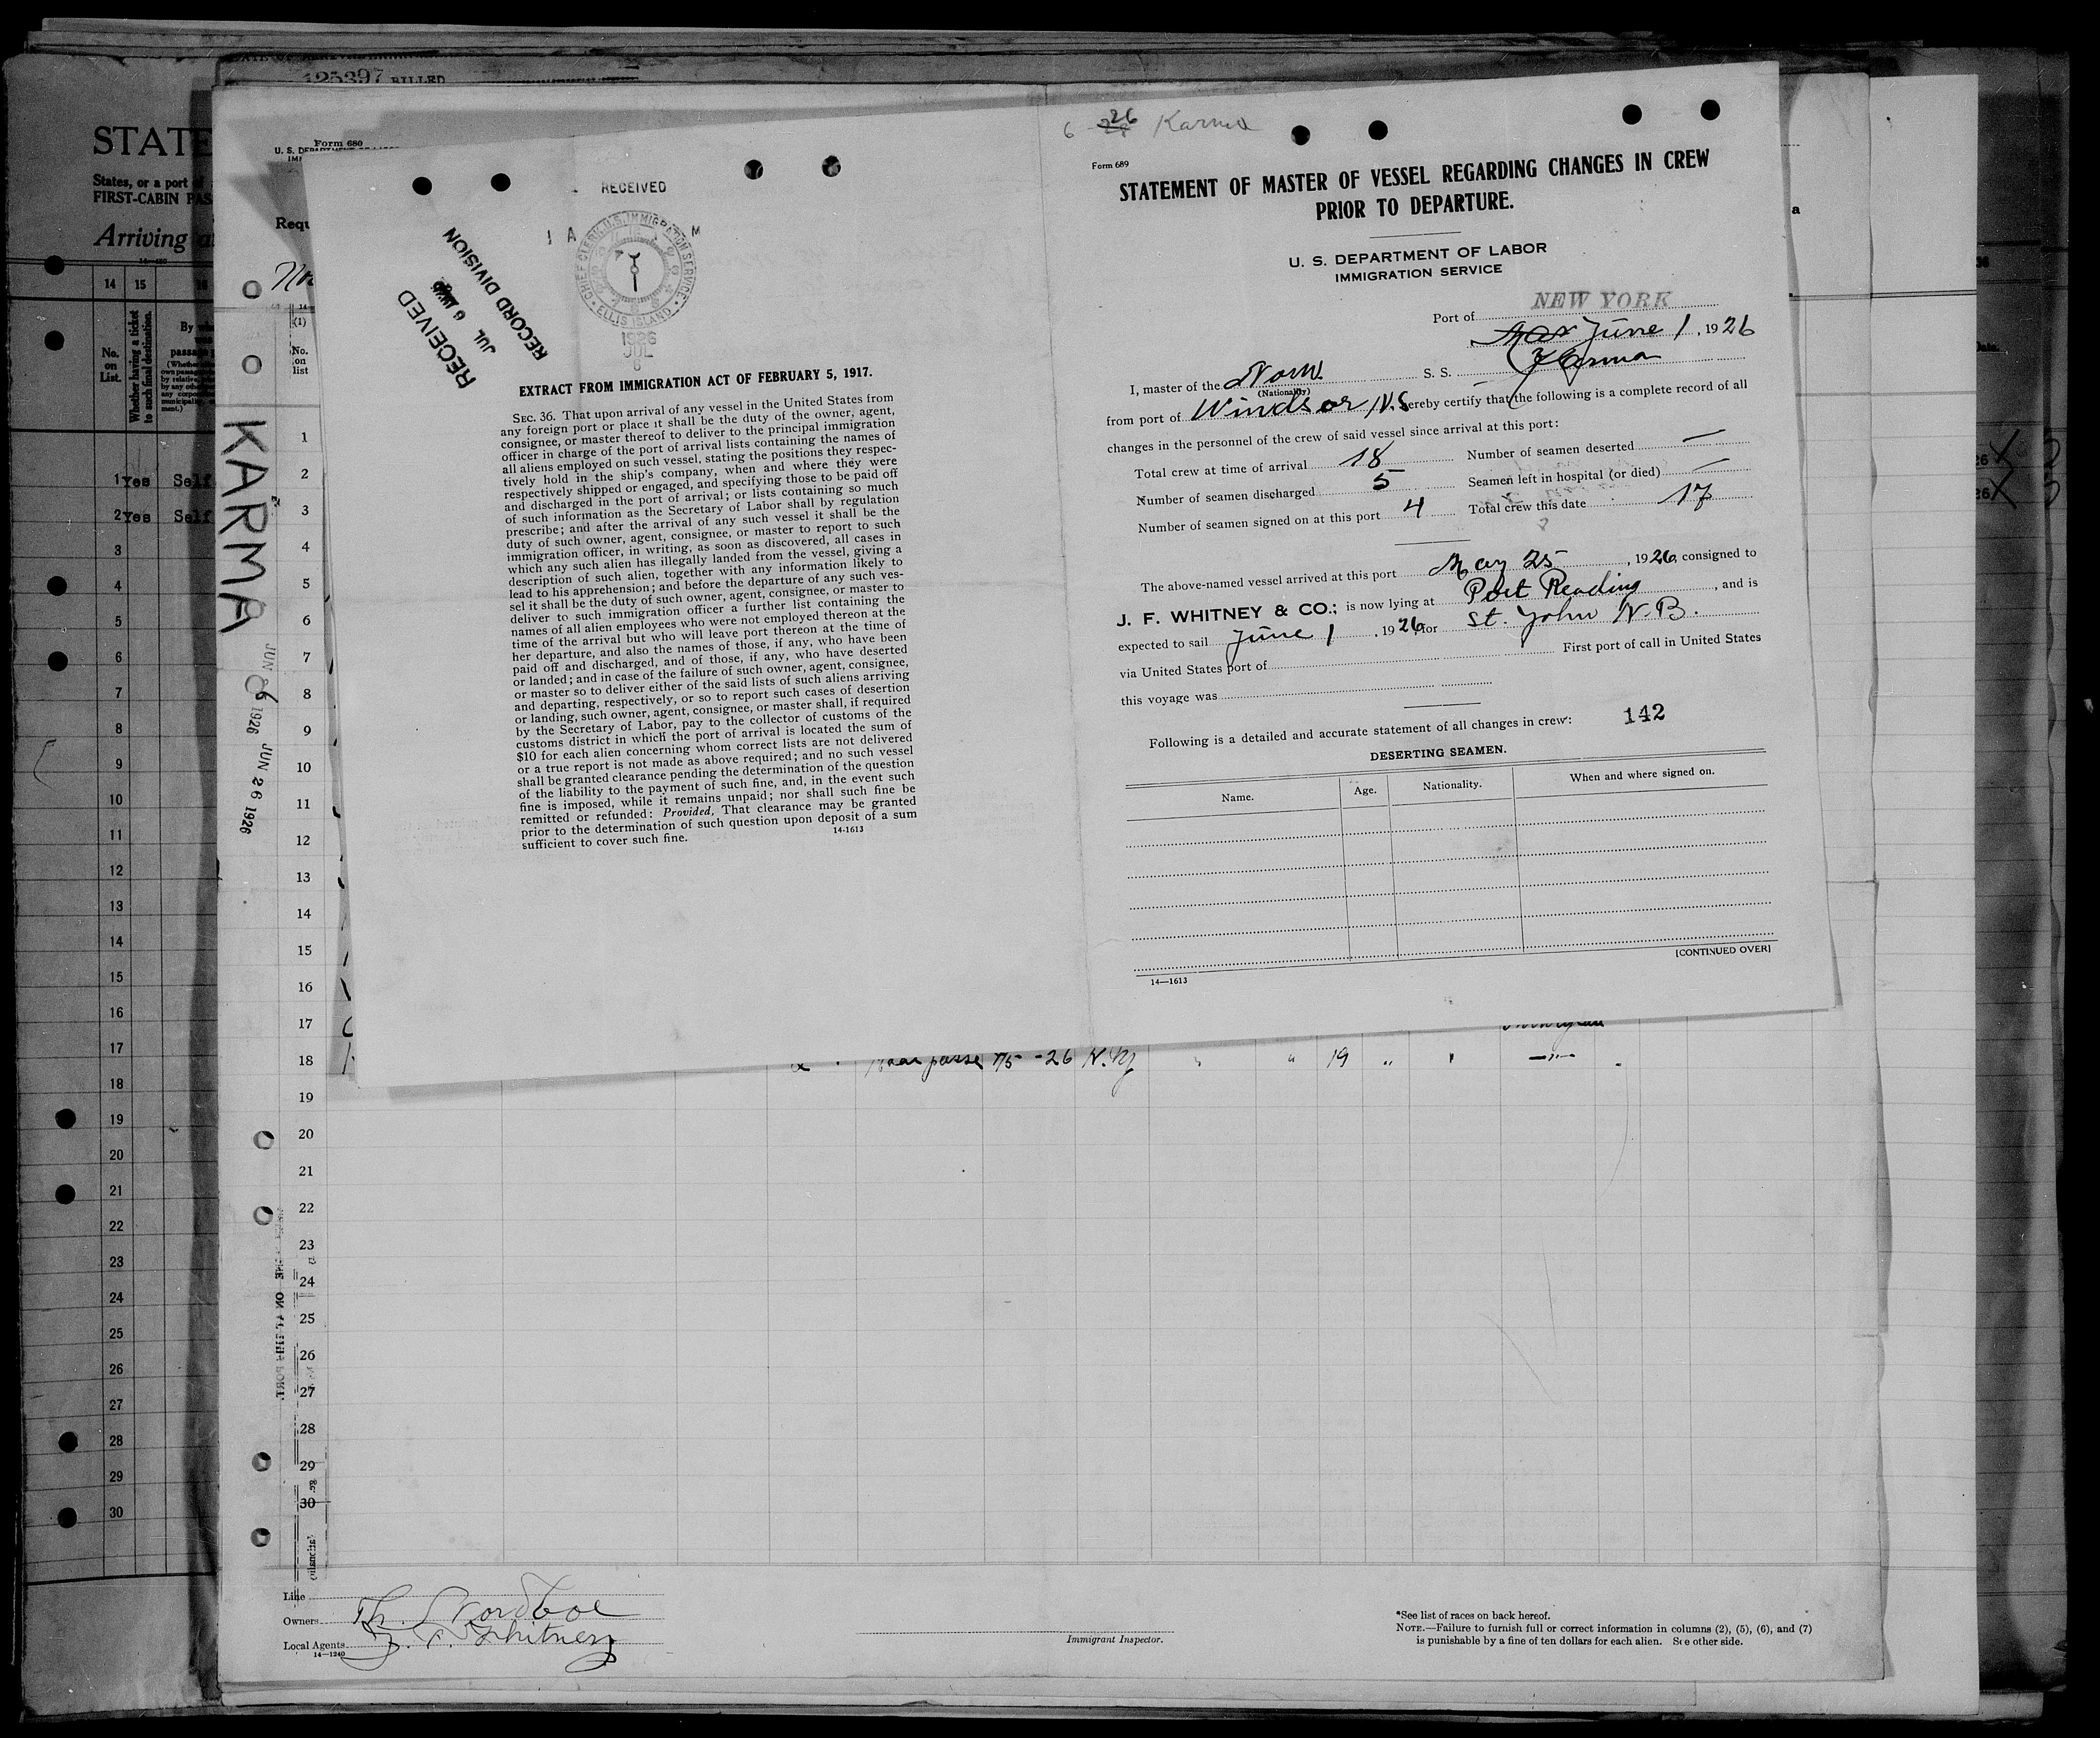 125397 BILLED
STATE
States, or a port
FIRST-CABIN PAS
Arriving a
14 15 16
No. on List.
Whether having a ticket to such final destination.
1 Yes Self
2 Yes Self
3
4
5
6
7
8
9
10
11
12
13
14
15
16
17
18
19
20
21
22
23
24
25
26
27
28
29
30
Form 680
Requ
KARMA
JUN 26 1926
JUN 26 1926
(1)
No. on list
1
2
3
4
5
6
7
8
9
10
11
12
13
14
15
16
17
18
19
20
21
22
23
24
25
26
27
28
29
30
RECEIVED
CHIEF CLERK, U.S. IMMIGRATION SERVICE
ELLIS ISLAND
1926
JUL
6
RECEIVED
JUL 6 1926
RECORD DIVISION
EXTRACT FROM IMMIGRATION ACT OF FEBRUARY 5, 1917.
SEC. 36. That upon arrival of any vessel in the United States from
any foreign port or place it shall be the duty of the owner, agent,
consignee, or master thereof to deliver to the principal immigration
officer in charge of the port of arrival lists containing the names of
all aliens employed on such vessel, stating the positions they respec-
tively hold in the ship's company, when and where they were
respectively shipped or engaged, and specifying those to be paid off
and discharged in the port of arrival; or lists containing so much
of such information as the Secretary of Labor shall by regulation
prescribe; and after the arrival of any such vessel it shall be the
duty of such owner, agent, consignee, or master to report to such
immigration officer, in writing, as soon as discovered, all cases in
which any such alien has illegally landed from the vessel, giving a
description of such alien, together with any information likely to
lead to his apprehension; and before the departure of any such ves-
sel it shall be the duty of such owner, agent, consignee, or master to
deliver to such immigration officer a further list containing the
names of all alien employees who were not employed thereon at the
time of the arrival but who will leave port thereon at the time of
her departure, and also the names of those, if any, who have been
paid off and discharged, and of those, if any, who have deserted
or landed; and in case of the failure of such owner, agent, consignee,
or master so to deliver either of the said lists of such aliens arriving
and departing, respectively, or so to report such cases of desertion
or landing, such owner, agent, consignee, or master shall, if required
by the Secretary of Labor, pay to the collector of customs of the
customs district in which the port of arrival is located the sum of
$10 for each alien concerning whom correct lists are not delivered
or a true report is not made as above required; and no such vessel
shall be granted clearance pending the determination of the question
of the liability to the payment of such fine, and, in the event such
fine is imposed, while it remains unpaid; nor shall such fine be
remitted or refunded: Provided, That clearance may be granted
prior to the determination of such question upon deposit of a sum
sufficient to cover such fine.
14-1613
6 26 Karma
Form 689
STATEMENT OF MASTER OF VESSEL REGARDING CHANGES IN CREW
PRIOR TO DEPARTURE.
U. S. DEPARTMENT OF LABOR
IMMIGRATION SERVICE
Port of NEW YORK
June 1, 1926
I, master of the Norw. S. S. Karma
(Nationality)
from port of Windsor N.S. hereby certify that the following is a complete record of all
changes in the personnel of the crew of said vessel since arrival at this port:
Total crew at time of arrival 18 Number of seamen deserted —
Number of seamen discharged 5 Seamen left in hospital (or died) —
Number of seamen signed on at this port 4 Total crew this date 17
The above-named vessel arrived at this port May 25, 1926, consigned to
J. F. WHITNEY & CO.; is now lying at Port Reading, and is
expected to sail June 1, 1926, for St. John N.B.
via United States port of First port of call in United States
this voyage was
Following is a detailed and accurate statement of all changes in crew: 142
DESERTING SEAMEN.
Name. Age. Nationality. When and where signed on.
[CONTINUED OVER]
14—1613
-26 N.Y. " 19 " —"—
Line
Owners Th.
Local Agents J. F. Whitney
14—1240
Immigrant Inspector.
*See list of races on back hereof.
NOTE.—Failure to furnish full or correct information in columns (2), (5), (6), and (7)
is punishable by a fine of ten dollars for each alien. See other side.